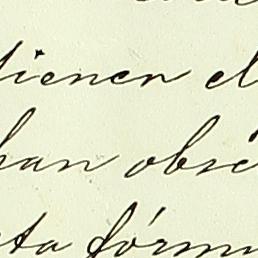 tienen el
han obsé
ta fórmu